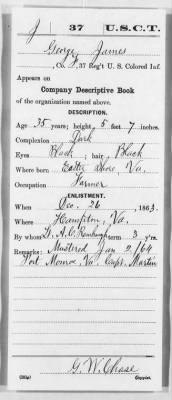 J 37 U.S.C.T.
George James
, Co. J, 37 Reg't U. S. Colored Inf.
Appears on
Company Descriptive Book
of the organization named above.
DESCRIPTION.
Age 35 years; height 5 feet 7 inches.
Complexion Dark
Eyes Black; hair Black
Where born Easter Shore, Va.
Occupation Farmer
ENLISTMENT.
When Dec. 26, 1863.
Where Hampton, Va.
By whom G. A. C. term 3 y'rs.
Remarks: Mustered Jan 2/64
Fort Monroe, Va. Capt. Martin
G. W. Chase
Copyist.